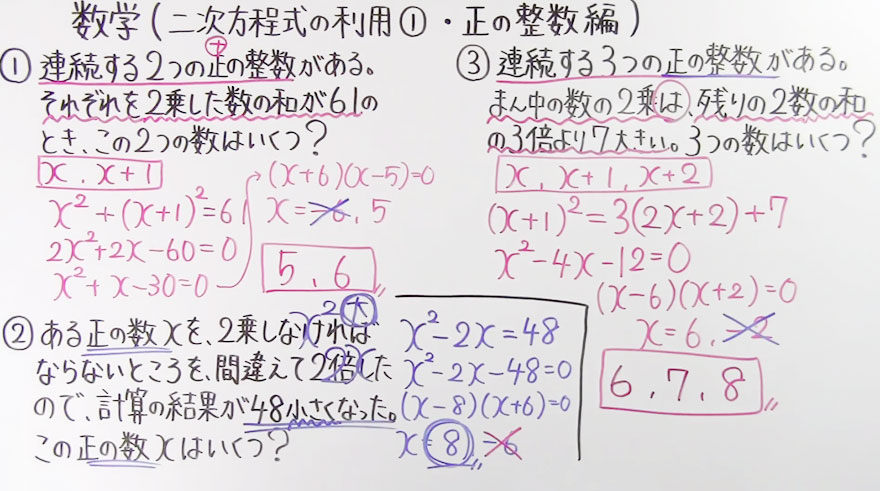 数学(二次方程式の利用①・正の整数編)
①連続する2つの正の整数がある。
それぞれを2乗した数の和が61の
とき、この2つの数はいくつ?
x、x+1
x²+(x+1)²=61
2x²+2x-60=0
x²+x-30=0
(x+6)(x-5)=0
x=-6、5
5、6
②ある正の数xを、2乗しなければ
ならないところを、間違えて2倍した
ので、計算の結果が48小さくなった。
この正の数xはいくつ?
x² 大
x²-2x=48
x²-2x-48=0
(x-8)(x+6)=0
x=8、-6
③連続する3つの正の整数がある。
まん中の数の2乗は、残りの2数の和
の3倍より7大きい。3つの数はいくつ?
x、x+1、x+2
(x+1)²=3(2x+2)+7
x²-4x-12=0
(x-6)(x+2)=0
x=6、-2
6、7、8